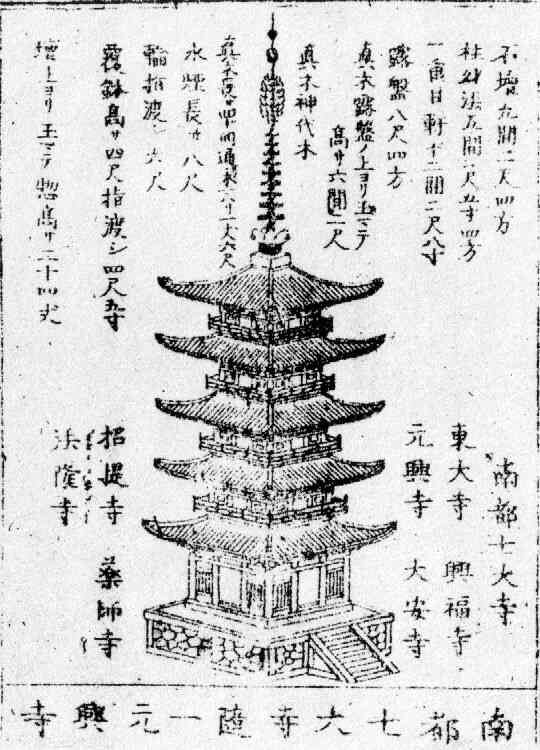 石壇九間二尺四方
柱外法五間一尺五寸四方
一重目軒十二間二尺八寸
露盤八尺四方
真木露盤ノ上ヨリ玉マテ
高サ六間二尺
真木神代木
水煙長サ八尺
輪指渡シ六尺
覆鉢高サ四尺指渡シ四尺五寸
壇上ヨリ玉マテ惣高サ二十四丈
南都七大寺
東大寺 興福寺
元興寺 大安寺
招提寺 薬師寺
法隆寺
南都七大寺隨一元興寺